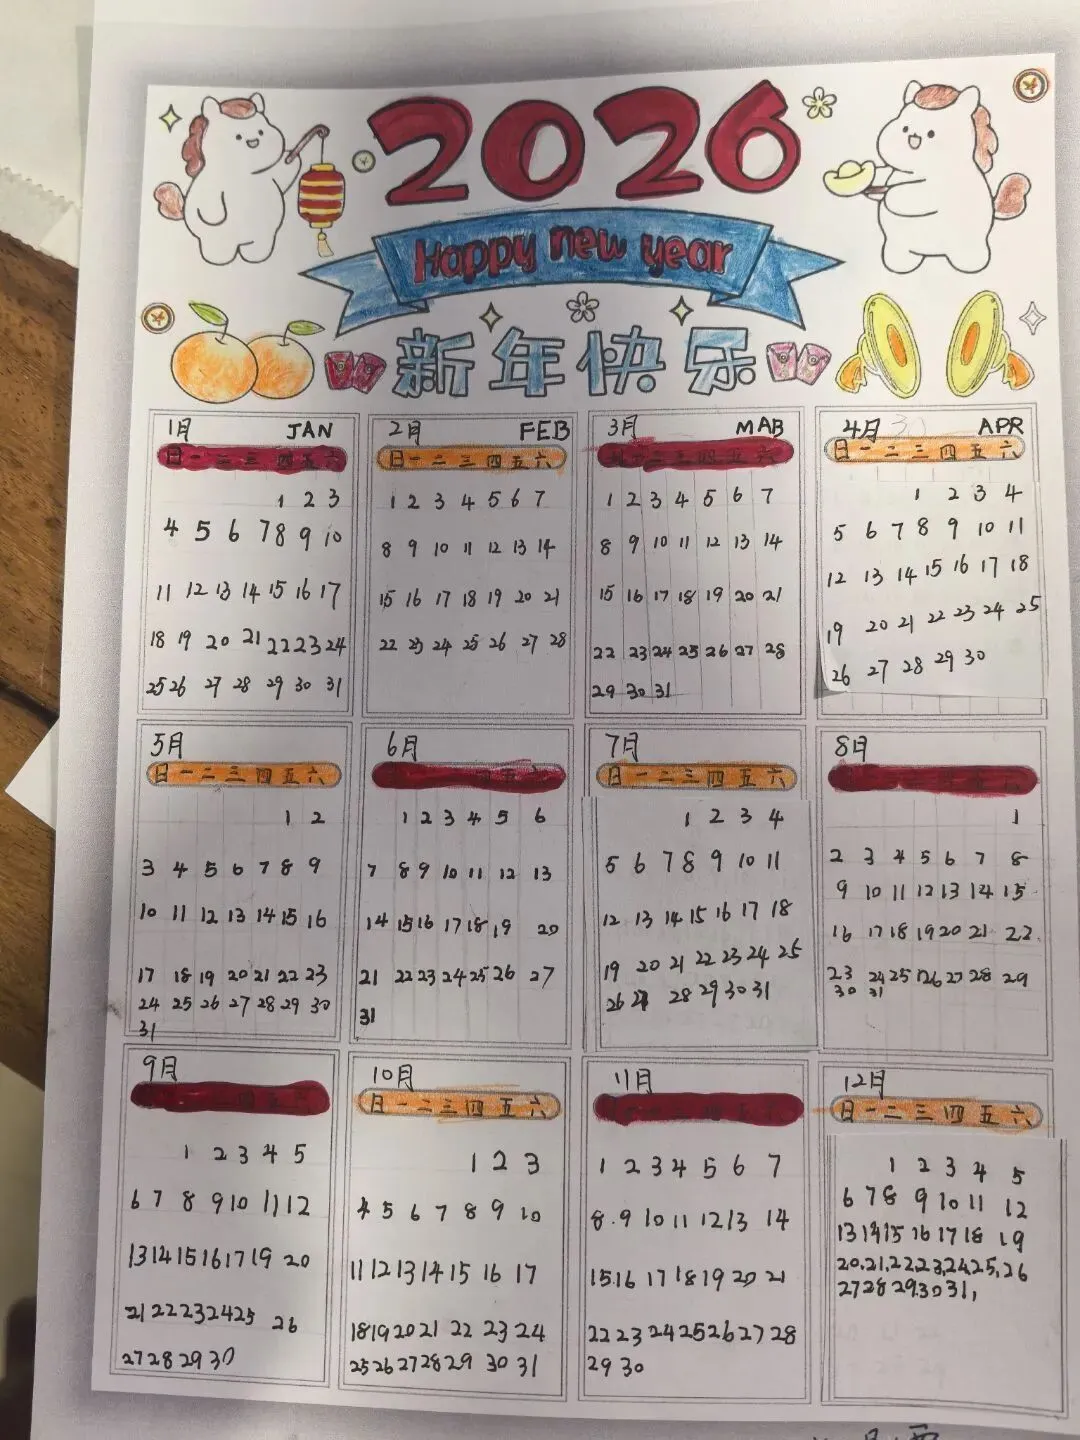 2026
Happy new year
新年快乐
1月 JAN
日一二三四五六
1 2 3
4 5 6 7 8 9 10
11 12 13 14 15 16 17
18 19 20 21 22 23 24
25 26 27 28 29 30 31
2月 FEB
日一二三四五六
1 2 3 4 5 6 7
8 9 10 11 12 13 14
15 16 17 18 19 20 21
22 23 24 25 26 27 28
3月 MAB
日一二三四五六
1 2 3 4 5 6 7
8 9 10 11 12 13 14
15 16 17 18 19 20 21
22 23 24 25 26 27 28
29 30 31
4月 APR
日一二三四五六
1 2 3 4
5 6 7 8 9 10 11
12 13 14 15 16 17 18
19 20 21 22 23 24 25
26 27 28 29 30
5月
日一二三四五六
1 2
3 4 5 6 7 8 9
10 11 12 13 14 15 16
17 18 19 20 21 22 23
24 25 26 27 28 29 30
31
6月
四五六
1 2 3 4 5 6
7 8 9 10 11 12 13
14 15 16 17 18 19 20
21 22 23 24 25 26 27
31
7月
日一二三四五六
1 2 3 4
5 6 7 8 9 10 11
12 13 14 15 16 17 18
19 20 21 22 23 24 25
26 27 28 29 30 31
8月
1
2 3 4 5 6 7 8
9 10 11 12 13 14 15
16 17 18 19 20 21 22
23 24 25 26 27 28 29
30 31
9月
1 2 3 4 5
6 7 8 9 10 11 12
13 14 15 16 17 19 20
21 22 23 24 25 26
27 28 29 30
10月
日一二三四五六
1 2 3
4 5 6 7 8 9 10
11 12 13 14 15 16 17
18 19 20 21 22 23 24
25 26 27 28 29 30 31
11月
1 2 3 4 5 6 7
8.9 10 11 12 13 14
15.16 17 18 19 20 21
22 23 24 25 26 27 28
29 30
12月
日一二三四五六
1 2 3 4 5
6 7 8 9 10 11 12
13 14 15 16 17 18 19
20.21.22 23.24.25.26
27 28 29.30 31,